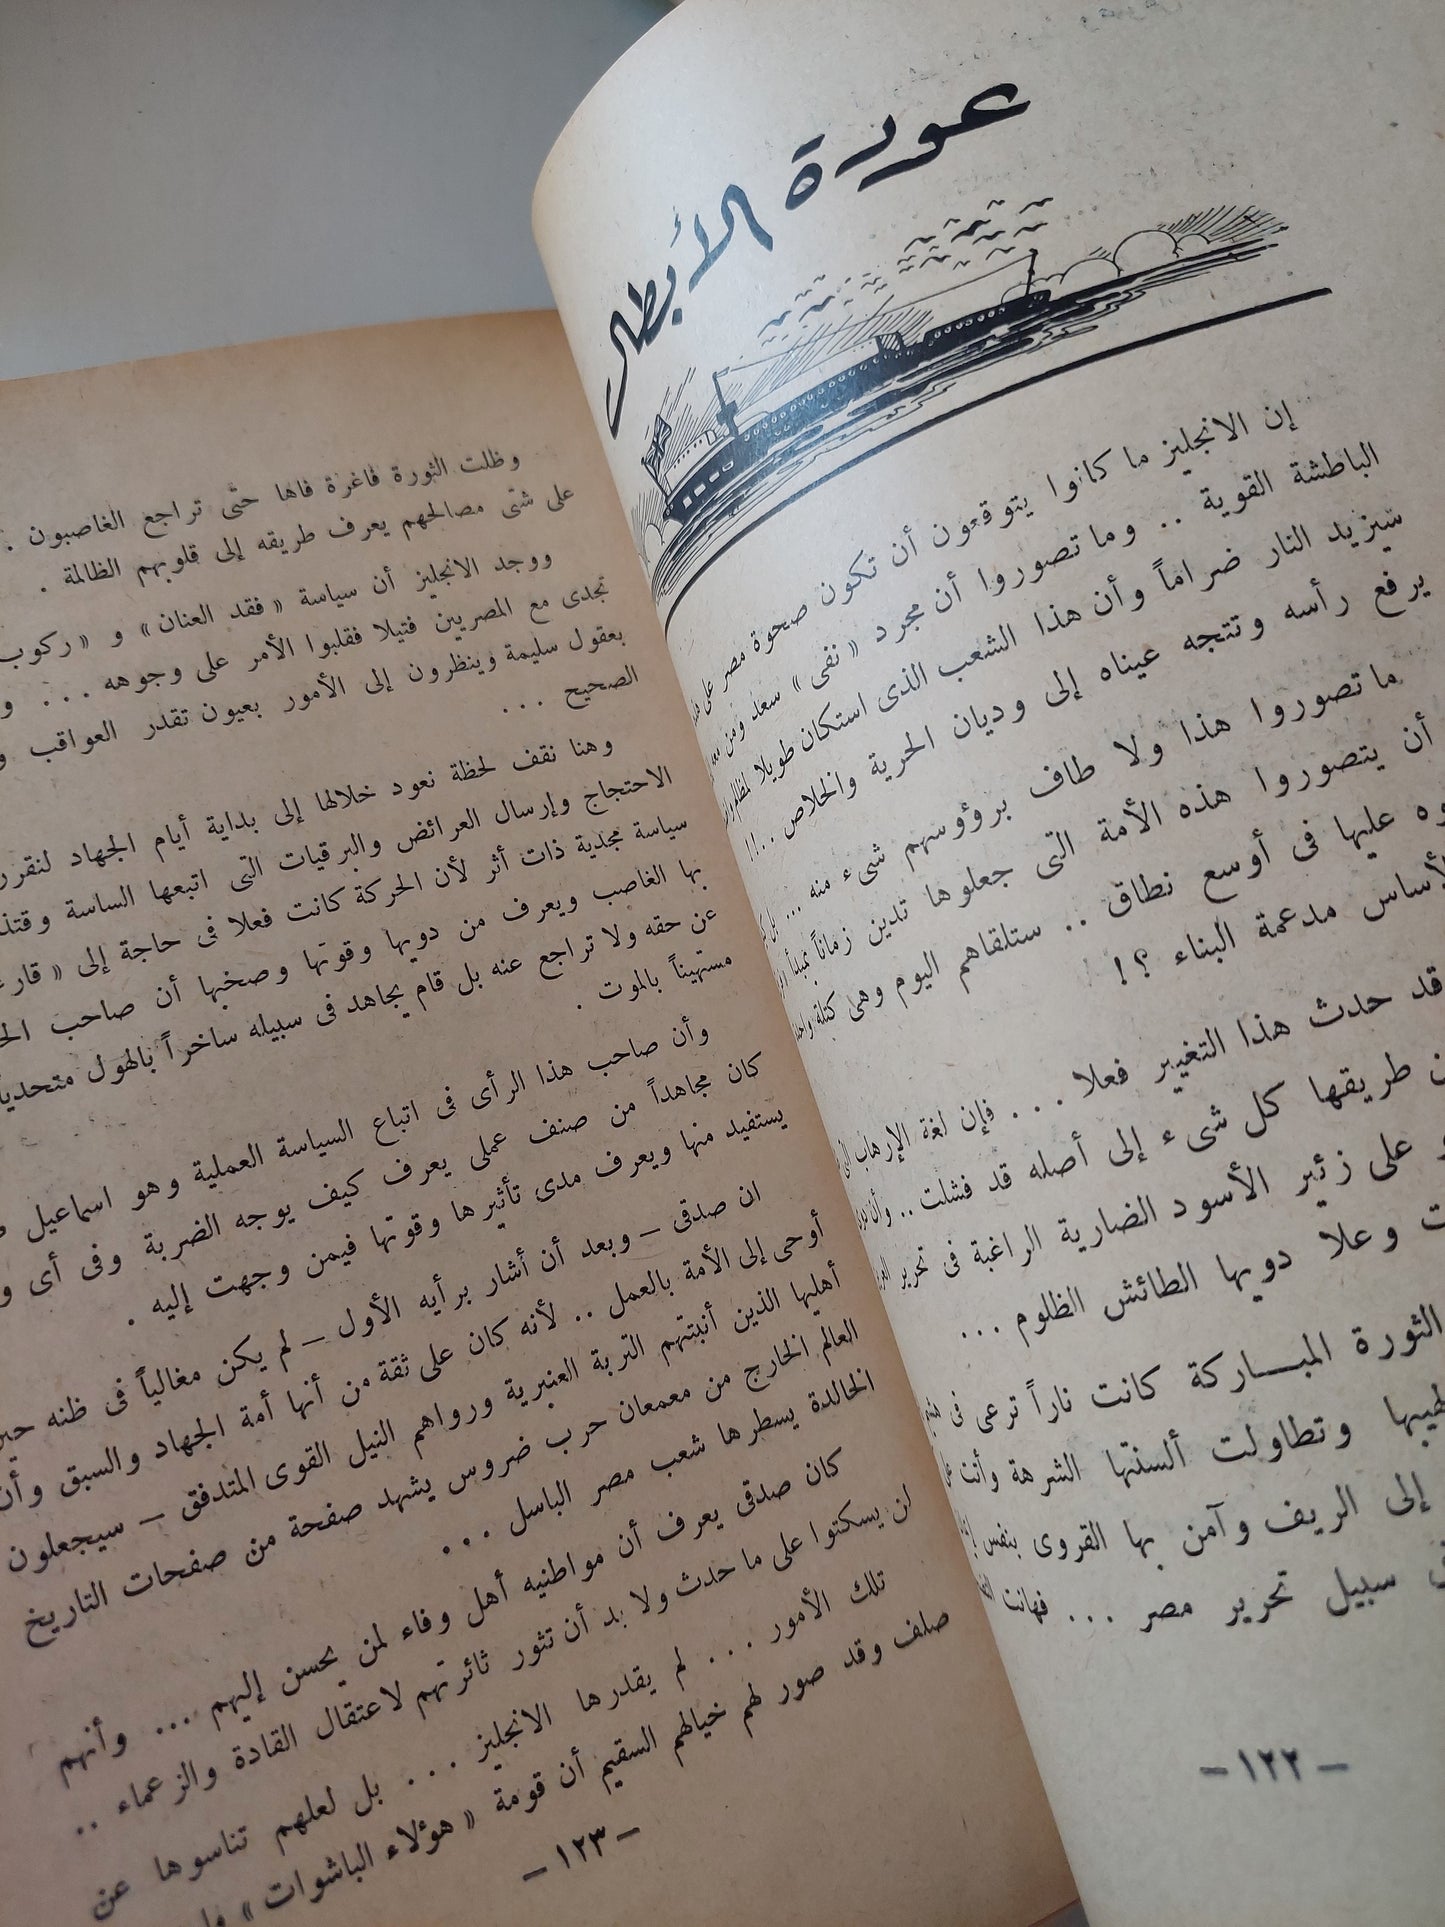 عودة الأبطال
إن الانجليز ما كانوا يتوقعون أن تكون صحوة مصر على
الباطشة القوية .. وما تصوروا أن مجرد « نفى » سعد ومن
سيزيد النار ضراماً وأن هذا الشعب الذى استكان طويلا
يرفع رأسه وتتجه عيناه إلى وديان الحرية والخلاص ..!!
ما تصوروا هذا ولا طاف برؤوسهم شىء منه ...
أن يتصوروا هذه الأمة التى جعلوها تدين زماناً
عليها فى أوسع نطاق .. ستلقاهم اليوم وهى كتلة
مدعمة البناء ؟!
قد حدث هذا التغيير فعلا ... فإن لغة الإرهاب
طريقها كل شىء إلى أصله قد فشلت ..
على زئير الأسود الضارية الراغبة فى تحرير
وعلا دويها الطائش الظلوم ...
الثورة المبــاركة كانت ناراً ترعى فى
وتطاولت ألسنتها الشرهة
إلى الريف وآمن بها القروى بنفس
سبيل تحرير مصر ... فهانت
– ١٢٢ –
وظلت الثورة فاغرة فاها حتى تراجع الغاصبون .
على شتى مصالحهم يعرف طريقه إلى قلوبهم الظالمة .
ووجد الانجليز أن سياسة « فقد العنان » و « ركوب
تجدى مع المصريين فتيلا فقلبوا الأمر على وجوهه ...
بعقول سليمة وينظرون إلى الأمور بعيون تقدر العواقب
الصحيح ...
وهنا نقف لحظة نعود خلالها إلى بداية أيام الجهاد لنقرر
الاحتجاج وإرسال العرائض والبرقيات التى اتبعها الساسة وقتذ
سياسة مجدية ذات أثر لأن الحركة كانت فعلا فى حاجة إلى «
بها الغاصب ويعرف من دويها وقوتها وصخبها أن صاحب
عن حقه ولا تراجع عنه بل قام يجاهد فى سبيله ساخراً بالهول متحدياً
مستهيناً بالموت .
وأن صاحب هذا الرأى فى اتباع السياسة العملية وهو اسماعيل
كان مجاهداً من صنف عملى يعرف كيف يوجه الضربة وفى أى
يستفيد منها ويعرف مدى تأثيرها وقوتها فيمن وجهت إليه .
ان صدقى – وبعد أن أشار برأيه الأول – لم يكن مغالياً فى ظنه
أوحى إلى الأمة بالعمل .. لأنه كان على ثقة من أنها أمة الجهاد والسبق وأن
أهليها الذين أنبتتهم التربة العنبرية ورواهم النيل القوى المتدفق – سيجعلون
العالم الخارج من معمعان حرب ضروس يشهد صفحة من صفحات التاريخ
الخالدة يسطرها شعب مصر الباسل ...
كان صدقى يعرف أن مواطنيه أهل وفاء لمن يحسن إليهم ... وأنهم
لن يسكتوا على ما حدث ولا بد أن تثور ثائرتهم لاعتقال القادة والزعماء ..
تلك الأمور ... لم يقدرها الانجليز ... بل لعلهم تناسوها عن
صلف وقد صور لهم خيالهم السقيم أن قومة « هؤلاء الباشوات »
– ١٢٣ –